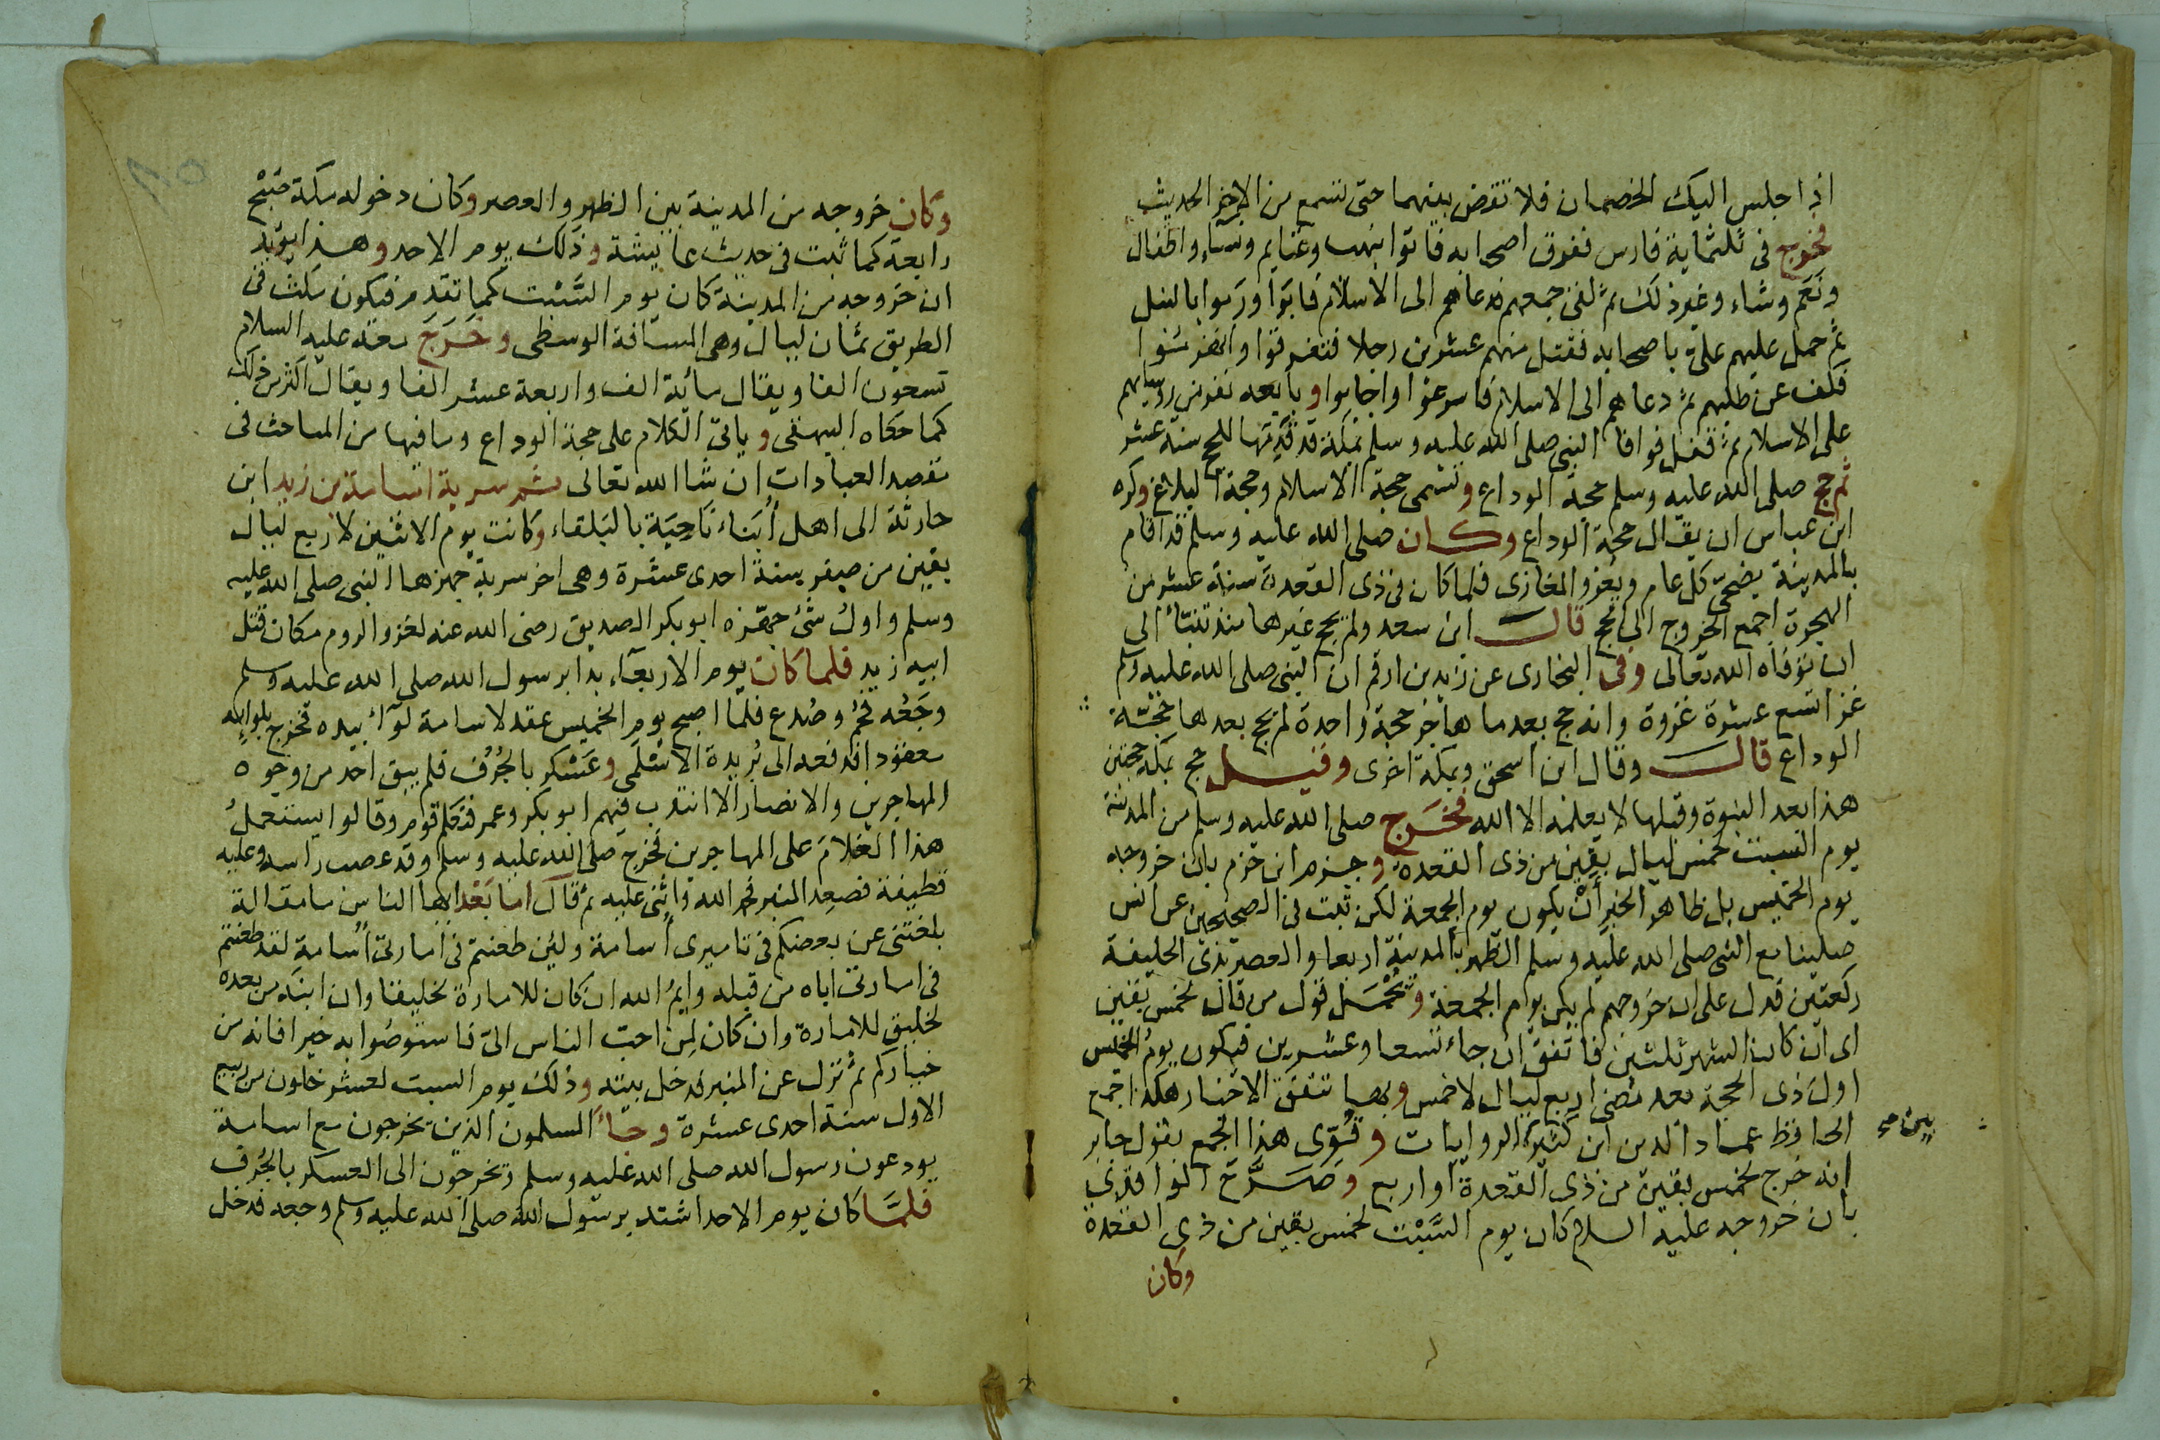 اذا جلس اليك الخصمان فلا تقض بينهما حتى تسمع من الاخر الحديث
فخرج فى ثلثماية فارس ففرق اصحابه فاتوا بنهب وغنايم ونساء واطفال
ونعم وشاء وغير ذلك ثم لقى جمعهم فدعاهم الى الاسلام فابوا ورموا بالنبل
ثم حمل عليهم على باصحابه فقتل منهم عشرين رجلا فتفرقوا وانهزموا
فكف عن طلبهم ثم دعاهم الى الاسلام فاسرعوا واجابوا وبايعه نفر من روسايهم
على الاسلام ثم قفل فوافا النبى صلى الله عليه وسلم بمكة قد قدمها للحج سنة عشر
ثم حج صلى الله عليه وسلم حجة الوداع وتسمى حجة الاسلام وحجة البلاغ وكره
ابن عباس ان يقال حجة الوداع وكان صلى الله عليه وسلم قد اقام
بالمدينة يضحى كل عام ويغزو المغازى فلما كان فى ذى القعدة سنة عشر من
الهجرة اجمع الخروج الى الحج قال ابن سعد ولم يحج غيرها منذ تنبأ الى
ان توفاه الله تعالى وفى البخارى عن زيد بن ارقم ان النبى صلى الله عليه وسلم
غزا تسع عشرة غزوة وانه حج بعد ما هاجر حجة واحدة لم يحج بعدها حجة
الوداع قال وقال ابن اسحق وبمكة اخرى وقيل حج بمكة حجتين
هذا بعد النبوة وقبلها لا يعلمه الا الله فخرج صلى الله عليه وسلم من المدينة
يوم السبت لخمس ليال بقين من ذى القعدة وجزم ابن حزم بان خروجه
يوم الخميس بل ظاهر الخبر أن يكون يوم الجمعة لكن ثبت فى الصحيحين عن انس
صلينا مع النبى صلى الله عليه وسلم الظهر بالمدينة اربعا والعصر بذى الحليفة
ركعتين فدل على ان خروجهم لم يكن يوم الجمعة وتحمل قول من قال لخمس بقين
اى ان كان الشهر ثلثين فاتفق ان جاء تسعا وعشرين فيكون يوم الخميس
اول ذى الحجة بعد مضى اربع ليال لا خمس وبهذا تتفق الاخبار هكذا جمع
الحافظ عماد الدين ابن كثير الروايات وقوى هذا الجمع بقول جابر
بين صح
انه خرج لخمس بقين من ذى القعدة او اربع وصرح الواقدى
بان خروجه عليه السلام كان يوم السبت لخمس بقين من ذى القعدة
وكان
وكان خروجه من المدينة بين الظهر والعصر وكان دخوله مكة صبح
رابعة كما ثبت فى حديث عايشة وذلك يوم الاحد وهذا يؤيد
ان خروجه من المدينة كان يوم السبت كما تقدم فيكون مكث فى
الطريق ثمان ليال وهى المسافة الوسطى وخرج معه عليه السلام
تسعون الفا ويقال مائة الف واربعة عشر الفا ويقال اكثر من ذلك
كما حكاه البيهقى وياتى الكلام على حجة الوداع وما فيها من المباحث فى
مقصد العبادات ان شا الله تعالى ثم سرية اسامة بن زيد ابن
حارثة الى اهل أبناء ناحية بالبلقاء وكانت يوم الاثنين لاربع ليال
بقين من صفر سنة احدى عشرة وهى اخر سرية جهزها النبى صلى الله عليه
وسلم واول شئ جهزه ابو بكر الصديق رضى الله عنه لغزو الروم مكان قتل
ابيه زيد فلما كان يوم الاربعآء بدا برسول الله صلى الله عليه وسلم
وجعه فحم وصدع فلما اصبح يوم الخميس عقد لاسامة لوآء بيده فخرج بلوايه
معقودا فدفعه الى بريدة الاسلمى وعسكر بالجرف فلم يبق احد من وجوه
المهاجرين والانصار الا انتدب فيهم ابو بكر وعمر فتكلم قوم وقالوا يستعمل
هذا الغلام على المهاجرين فخرج صلى الله عليه وسلم وقد عصب راسه وعليه
قطيفة فصعد المنبر فحمد الله واثنى عليه ثم قال اما بعد ايها الناس ما مقالة
بلغتنى عن بعضكم فى تاميرى اسامة ولئن طعنتم فى امارتى أسامة لقد طعنتم
فى امارتى اباه من قبله وايم الله ان كان للامارة لخليقا وان ابنه من بعده
لخليق للامارة وان كان لمن احب الناس الى فاستوصوا به خيرا فانه من
خياركم ثم نزل عن المنبر فدخل بيته وذلك يوم السبت لعشر خلون من ربيع
الاول سنة احدى عشرة وجاء المسلمون الذين يخرجون مع اسامة
يودعون رسول الله صلى الله عليه وسلم ويخرجون الى العسكر بالجرف
فلما كان يوم الاحد اشتد برسول الله صلى الله عليه وسلم وجعه فدخل